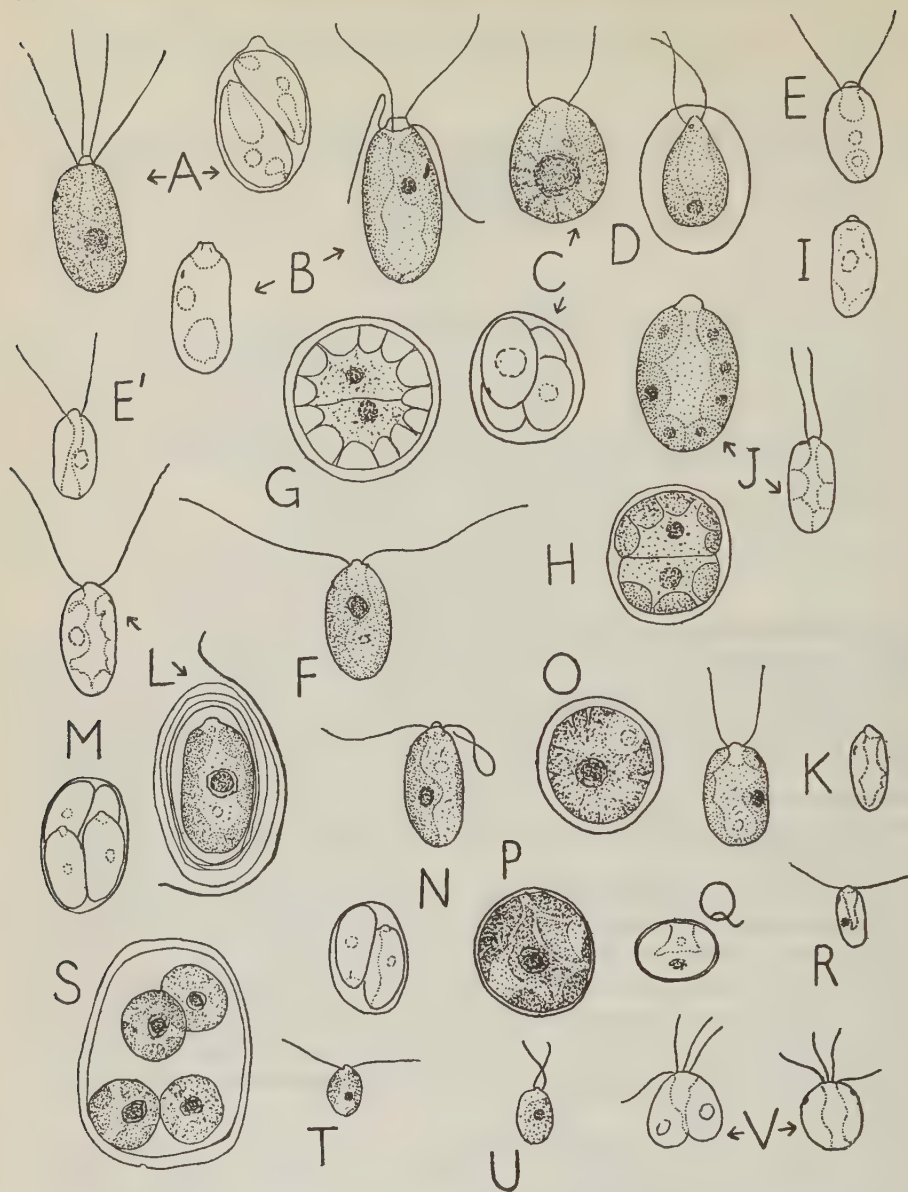 A
B
C
D
E
I
E'
G
J
H
L
F
O
M
K
N
P
Q
R
S
T
U
V